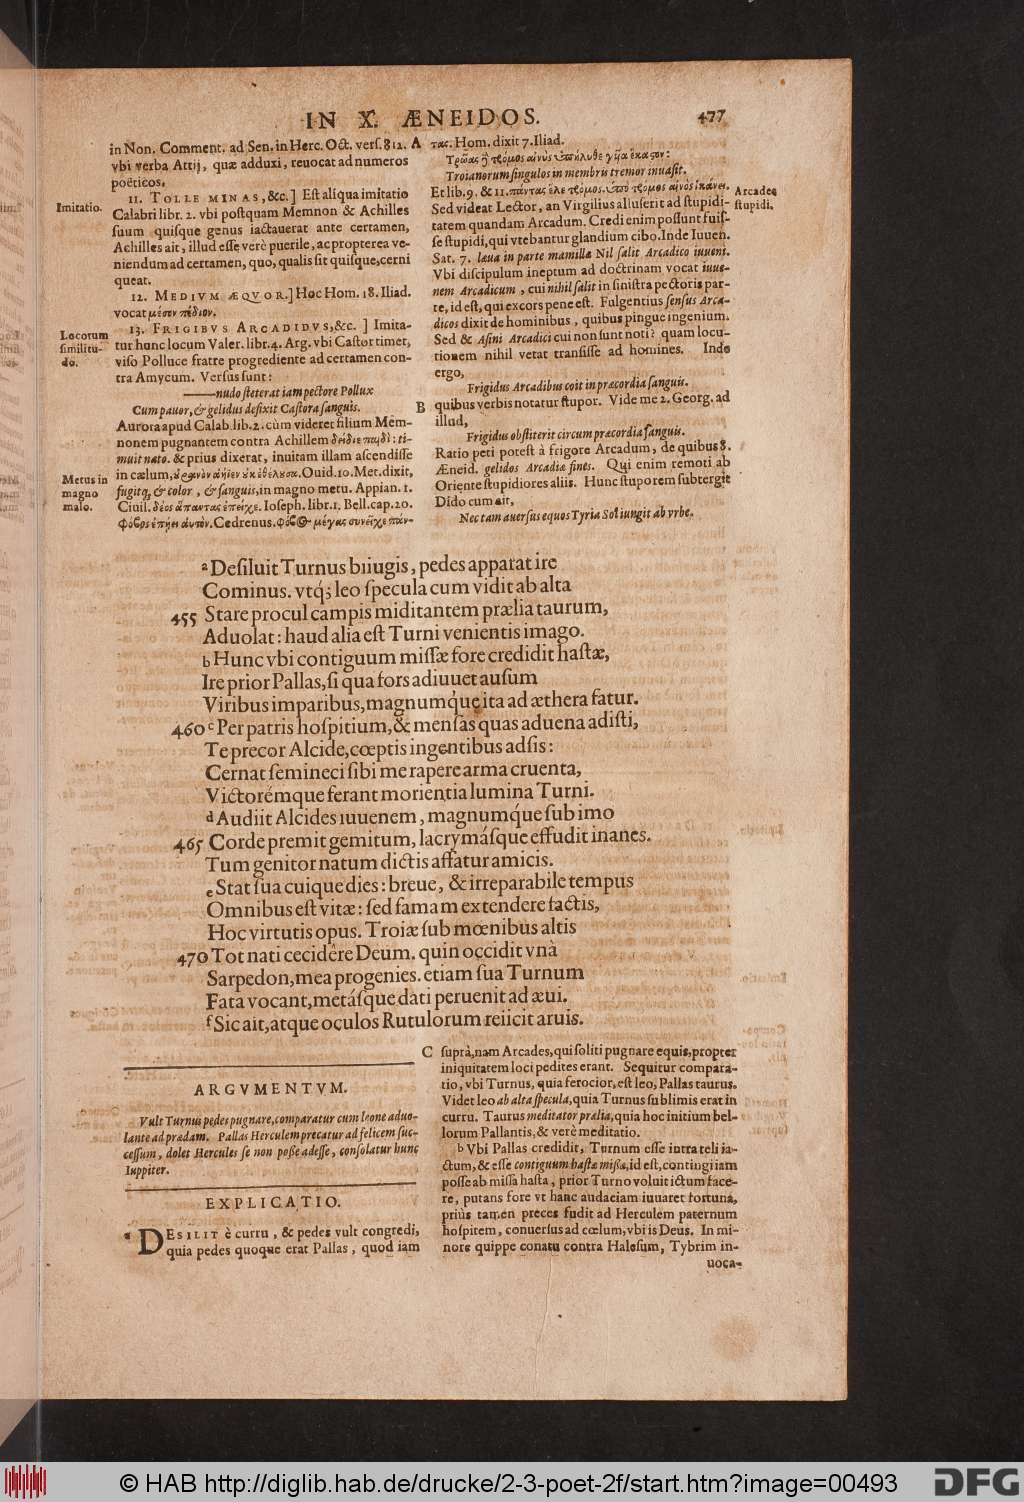 IN X. ÆNEIDOS.
477
in Non. Comment. ad Sen. in Herc. Oct. vers. 812.
vbi verba Attij, quæ adduxi, reuocat ad numeros
poëticos.
Imitatio.
11. TOLLE MINAS, &c.] Est aliqua imitatio
Calabri libr. 2. vbi postquam Memnon & Achilles
suum quisque genus iactauerat ante certamen,
Achilles ait, illud esse verè puerile, ac propterea ve-
niendum ad certamen, quo, qualis sit quisque, cerni
queat.
12. MEDIVM ÆQVOR.] Hoc Hom. 18. Iliad.
vocat μέσον πέδιον.
Locorum
similitu-
do.
13. FRIGIDVS ARCADIBVS, &c. ] Imita-
tur hunc locum Valer. libr. 4. Arg. vbi Castor timet,
viso Polluce fratre progrediente ad certamen con-
tra Amycum. Versus sunt:
——nudo steterat iam pectore Pollux
Cum pauor, & gelidus defixit Castora sanguis.
Aurora apud Calab. lib. 2. cùm videret filium Mem-
nonem pugnantem contra Achillem δείδιε παιδὶ: ti-
muit nato. & prius dixerat, inuitam illam ascendisse
Metus in
magno
malo.
in cælum, Ouid. 10. Met. dixit,
fugitq́, & color, & sanguis, in magno metu. Appian. 1.
Ciuil. δέος ἅπαντας ἐπεῖχε. Ioseph. libr. 1. Bell. cap. 20.
φόβος ἐπῄει αὐτὸν. Cedrenus. φόβος μέγας συνεῖχε πάν-
A
τας. Hom. dixit 7. Iliad.
Τρῶας ἢ τρόμος αἰνὸς ὑπήλυθε γῦια ἕκαστον:
Troianorum singulos in membris tremor inuasit.
Et lib. 9. & 11. πάντας ἕλε τρόμος. ὑπὸ τρόμος αἰνὸς ἱκάνει.
Arcades
stupidi.
Sed videat Lector, an Virgilius alluserit ad stupidi-
tatem quandam Arcadum. Credi enim possunt fuis-
se stupidi, qui vtebantur glandium cibo. Inde Iuuen.
Sat. 7. læua in parte mamillæ Nil salit Arcadico iuueni.
Vbi discipulum ineptum ad doctrinam vocat iuue-
nem Arcadicum, cui nihil salit in sinistra pectoris par-
te, id est, qui excors pene est. Fulgentius sensus Arca-
dicos dixit de hominibus, quibus pingue ingenium.
Sed & Asini Arcadici cui non sunt noti? quam locu-
tionem nihil vetat transisse ad homines. Inde
ergo,
Frigidus Arcadibus coit in præcordia sanguis.
B
quibus verbis notatur stupor. Vide me 2. Georg. ad
illud,
Frigidus obstiterit circum præcordia sanguis.
Ratio peti potest à frigore Arcadum, de quibus 8.
Æneid. gelidos Arcadiæ fines. Qui enim remoti ab
Oriente stupidiores aliis. Hunc stuporem subtergit
Dido cum ait,
Nec tam auersus equos Tyria Sol iungit ab vrbe.
a Desiluit Turnus biiugis, pedes apparat ire
Cominus. vtq́; leo specula cum vidit ab alta
455 Stare procul campis miditantem prælia taurum,
Aduolat: haud alia est Turni venientis imago.
b Hunc vbi contiguum missæ fore credidit hastæ,
Ire prior Pallas, si qua fors adiuuet ausum
Viribus imparibus, magnumq́ue ita ad æthera fatur.
460 c Per patris hospitium, & mensas quas aduena adisti,
Te precor Alcide, cœptis ingentibus adsis:
Cernat semineci sibi me rapere arma cruenta,
Victorémque ferant morientia lumina Turni.
d Audiit Alcides iuuenem, magnumq́ue sub imo
465 Corde premit gemitum, lacrymásque effudit inanes.
Tum genitor natum dictis affatur amicis.
e Stat sua cuique dies: breue, & irreparabile tempus
Omnibus est vitæ: sed famam extendere factis,
Hoc virtutis opus. Troiæ sub mœnibus altis
470 Tot nati cecidêre Deum. quin occidit vnà
Sarpedon, mea progenies. etiam sua Turnum
Fata vocant, metásque dati peruenit ad æui.
f Sic ait, atque oculos Rutulorum reiicit aruis.
ARGVMENTVM.
Vult Turnus pedes pugnare, comparatur cum leone aduo-
lante ad prædam. Pallas Herculem precatur ad felicem suc-
cessum, dolet Hercules se non posse adesse, consolatur hunc
Iuppiter.
EXPLICATIO.
a DESILIT è curru, & pedes vult congredi,
quia pedes quoque erat Pallas, quod iam
C
suprà, nam Arcades, qui soliti pugnare equis, propter
iniquitatem loci pedites erant. Sequitur compara-
tio, vbi Turnus, quia ferocior, est leo, Pallas taurus.
Videt leo ab alta specula, quia Turnus sublimis erat in
curru. Taurus meditator prælia, quia hoc initium bel-
lorum Pallantis, & verè meditatio.
b Vbi Pallas credidit, Turnum esse intra teli ia-
ctum, & esse contiguum hastæ missæ, id est, contingi iam
posse ab missa hasta, prior Turno voluit ictum face-
re, putans fore vt hanc audaciam iuuaret fortuna,
priùs tamen preces fudit ad Herculem paternum
hospitem, conuersus ad cœlum, vbi is Deus. In mi-
nore quippe conatu contra Halesum, Tybrim in-
uoca-
© HAB http://diglib.hab.de/drucke/2-3-poet-2f/start.htm?image=00493
DFG